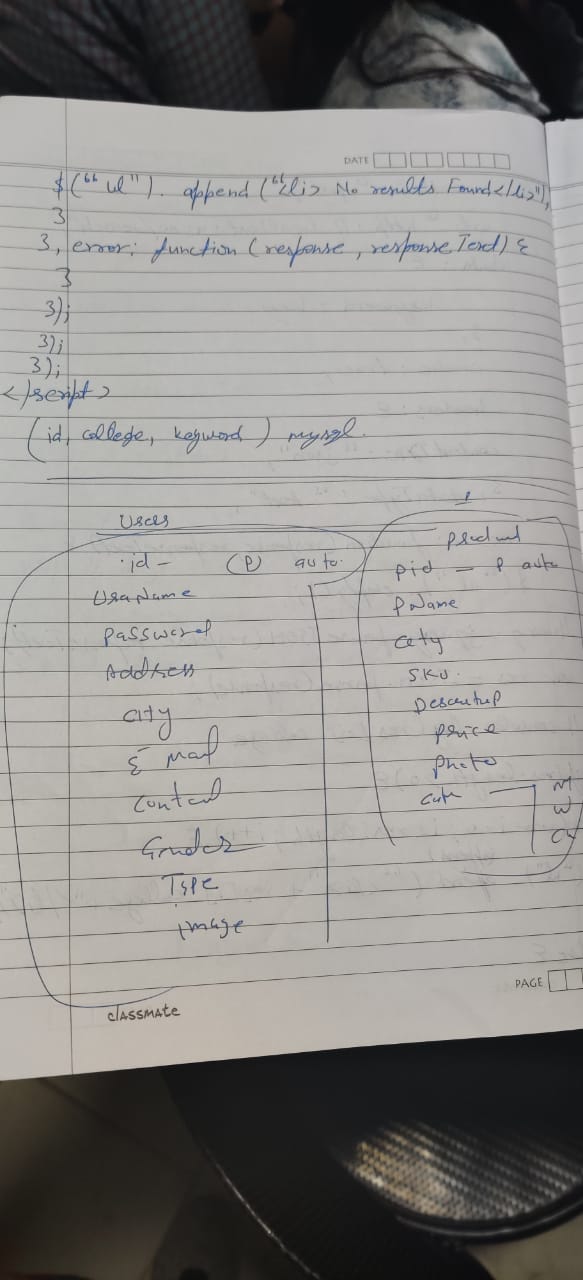 DATE
$("ul"). append ("<li> No results Found</li>"),
}
}, error: function (response, response Text) {
}
});
});
});
</script>
(id, college, keyword) mysql.
Users
id - (P) auto.
UserName
Password
Address
City
E mail
Contact
Gender
Type
image
Product
Pid - P auto
PName
SKU.
Price
Photo
Cate
M
W
PAGE
classmate